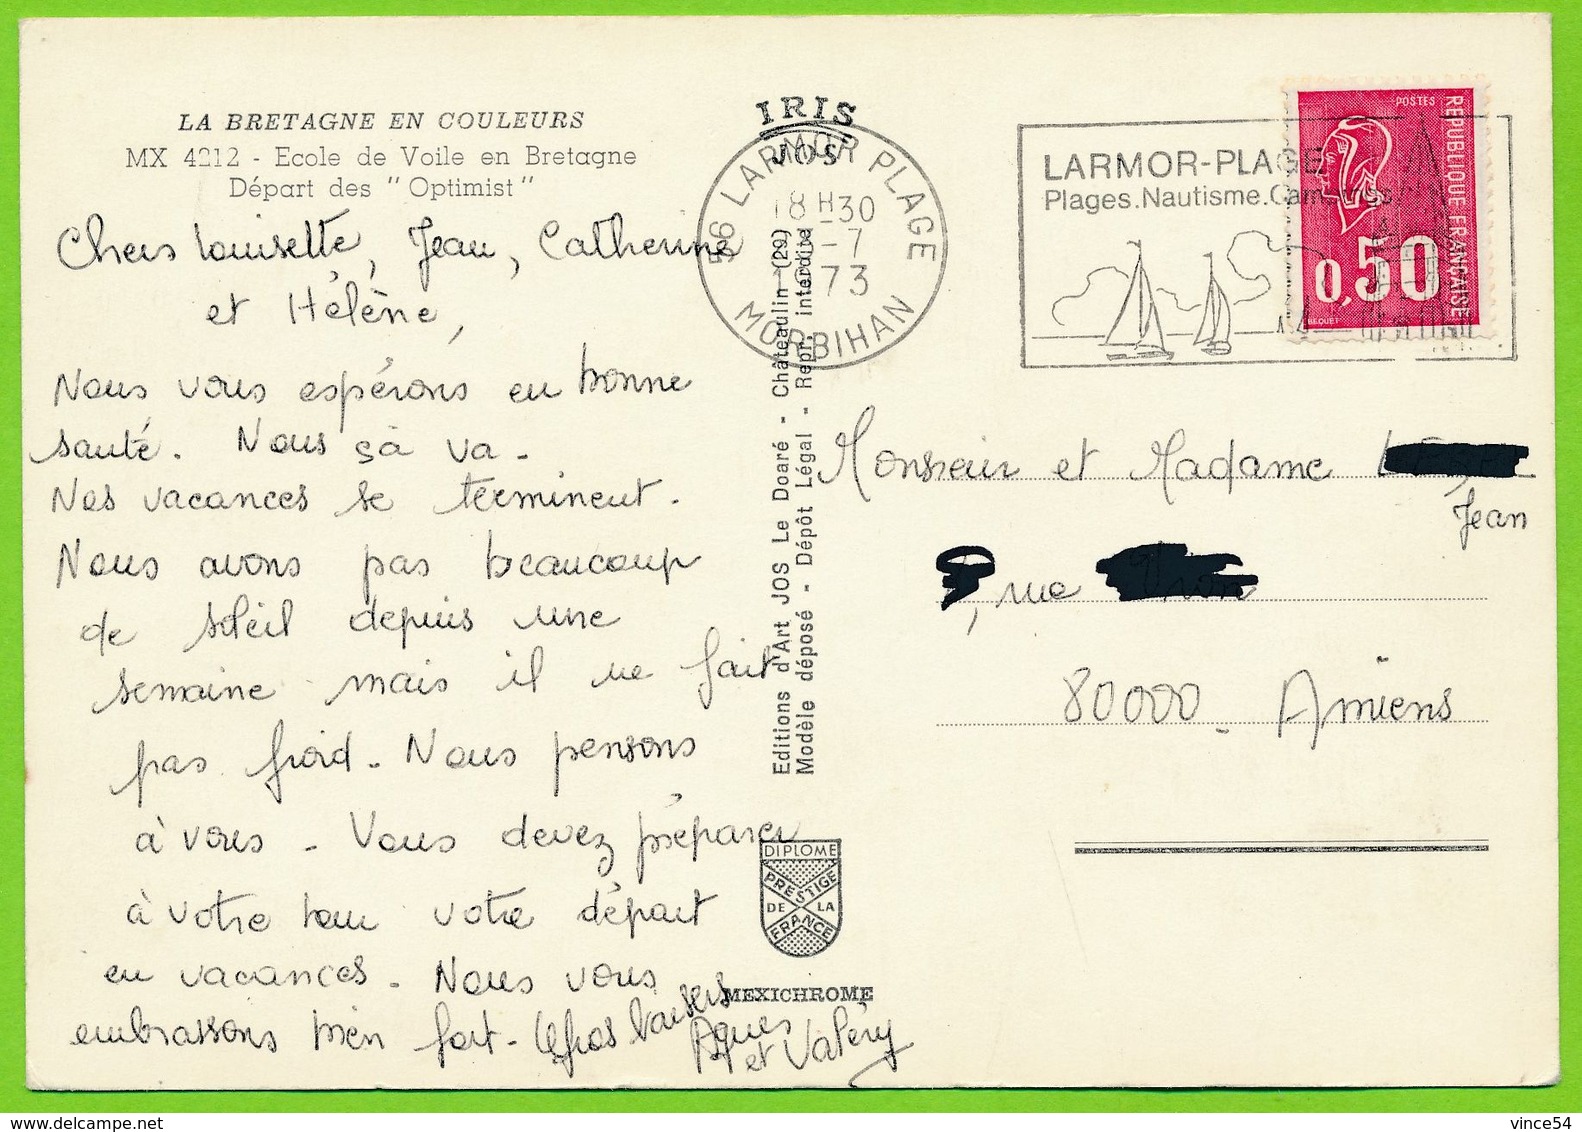 LA BRETAGNE EN COULEURS
MX 4212 - Ecole de Voile en Bretagne
Départ des "Optimist"
Chers Louisette, Jean, Catherine
et Hélène,
Nous vous espérons en bonne
santé. Nous çà va.
Nos vacances se terminent.
Nous avons pas beaucoup
de soleil depuis une
semaine mais il ne fait
pas froid. Nous pensons
à vous. Vous devez préparer
à votre tour votre départ
en vacances. Nous vous
embrassons bien fort. Gros baisers
Agnès
et Valéry
IRIS
JOS
56 LARMOR PLAGE
18H30
-7
1973
MORBIHAN
Editions d'Art JOS Le Doaré - Châteaulin (29)
Modèle déposé - Dépôt Légal - Repr. interdite
DIPLOME
PRESTIGE
DE LA
FRANCE
MEXICHROME
LARMOR-PLAGE
Plages.Nautisme.Campings
POSTES
REPUBLIQUE FRANÇAISE
0,50
BEQUET
Monsieur et Madame
Jean
, rue
80000 - Amiens
delcampe.net
vince54